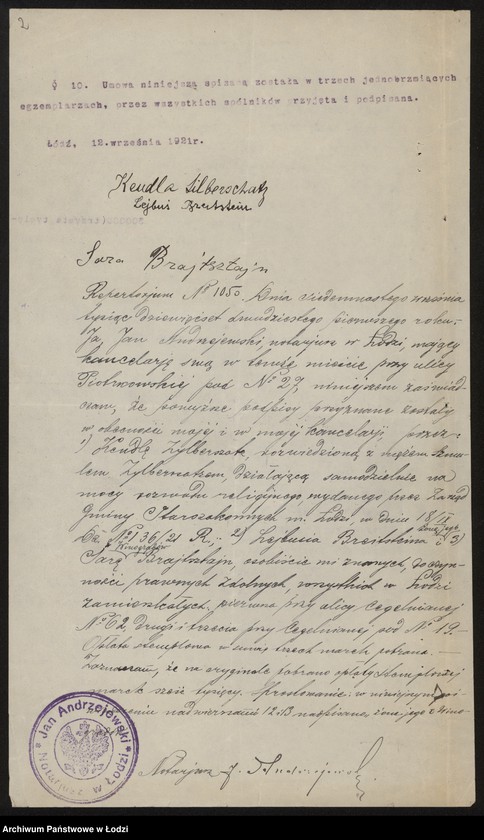 2
§ 10. Umowa niniejsza spisana została w trzech jednobrzmiących
egzemplarzach, przez wszystkich spólników przyjęta i podpisana.
Łódź, 12.września 1921r.
Kendla Silberschatz
Lejbuś Brettstein
Sara Brajtsztajn
Repertorjum № 1050. Dnia siedemnastego września
tysiąc dziewięćset dwudziestego pierwszego roku.
Ja, Jan Andrzejewski, notarjusz w Łodzi, mający
kancelarję swą w temże mieście przy ulicy
Piotrkowskiej pod № 27, niniejszem zaświad-
czam, że powyższe podpisy przyznane zostały
w obecności mojej i w mojej kancelarji, przez:-
1) Kendlę Zylberszatz, rozwiedzioną z mężem
Zylberszatzem, działającą samodzielnie na
mocy rozwodu religijnego, wydanego przez Zarząd
Gminy Starozakonnych m. Łodzi, w dniu 18/IX
№ 136/21 R., 2) Lejbusia Breitsteina i 3)
Sarę Brajtsztajn, osobiście mi znanych, do czyn-
ności prawnych zdolnych, wszystkich w Łodzi
zamieszkałych, pierwsza przy ulicy Cegielnianej
№ 62, drugi i trzecia przy Cegielnianej pod № 19.-
Opłata stemplowa w sumie trzech marek pobrana.-
że na oryginale pobrano opłaty stemplowej
marek sześć tysięcy. Sprostowanie: w niniejszym
nad wierszami 12 i 13 napisano "żonę jego
Notarjusz J. Andrzejewski
* Jan Andrzejewski * Notarjusz w Łodzi
Archiwum Państwowe w Łodzi